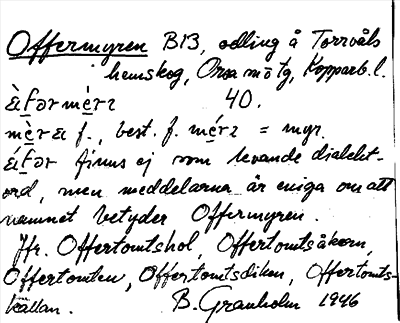 Offermyren B13, odling å Torrvåls
hemskog, Orsa sn o tg, Kopparb. l.
40.
f., best. f. = myr.
finns ej som levande dialekt-
ord, men meddelarna är eniga om att
namnet betyder Offermyren.
Jfr. Offertomtshol, Offertomtsåkern,
Offertomten, Offertomtsdiken, Offertomts-
källan. B. Granholm 1946